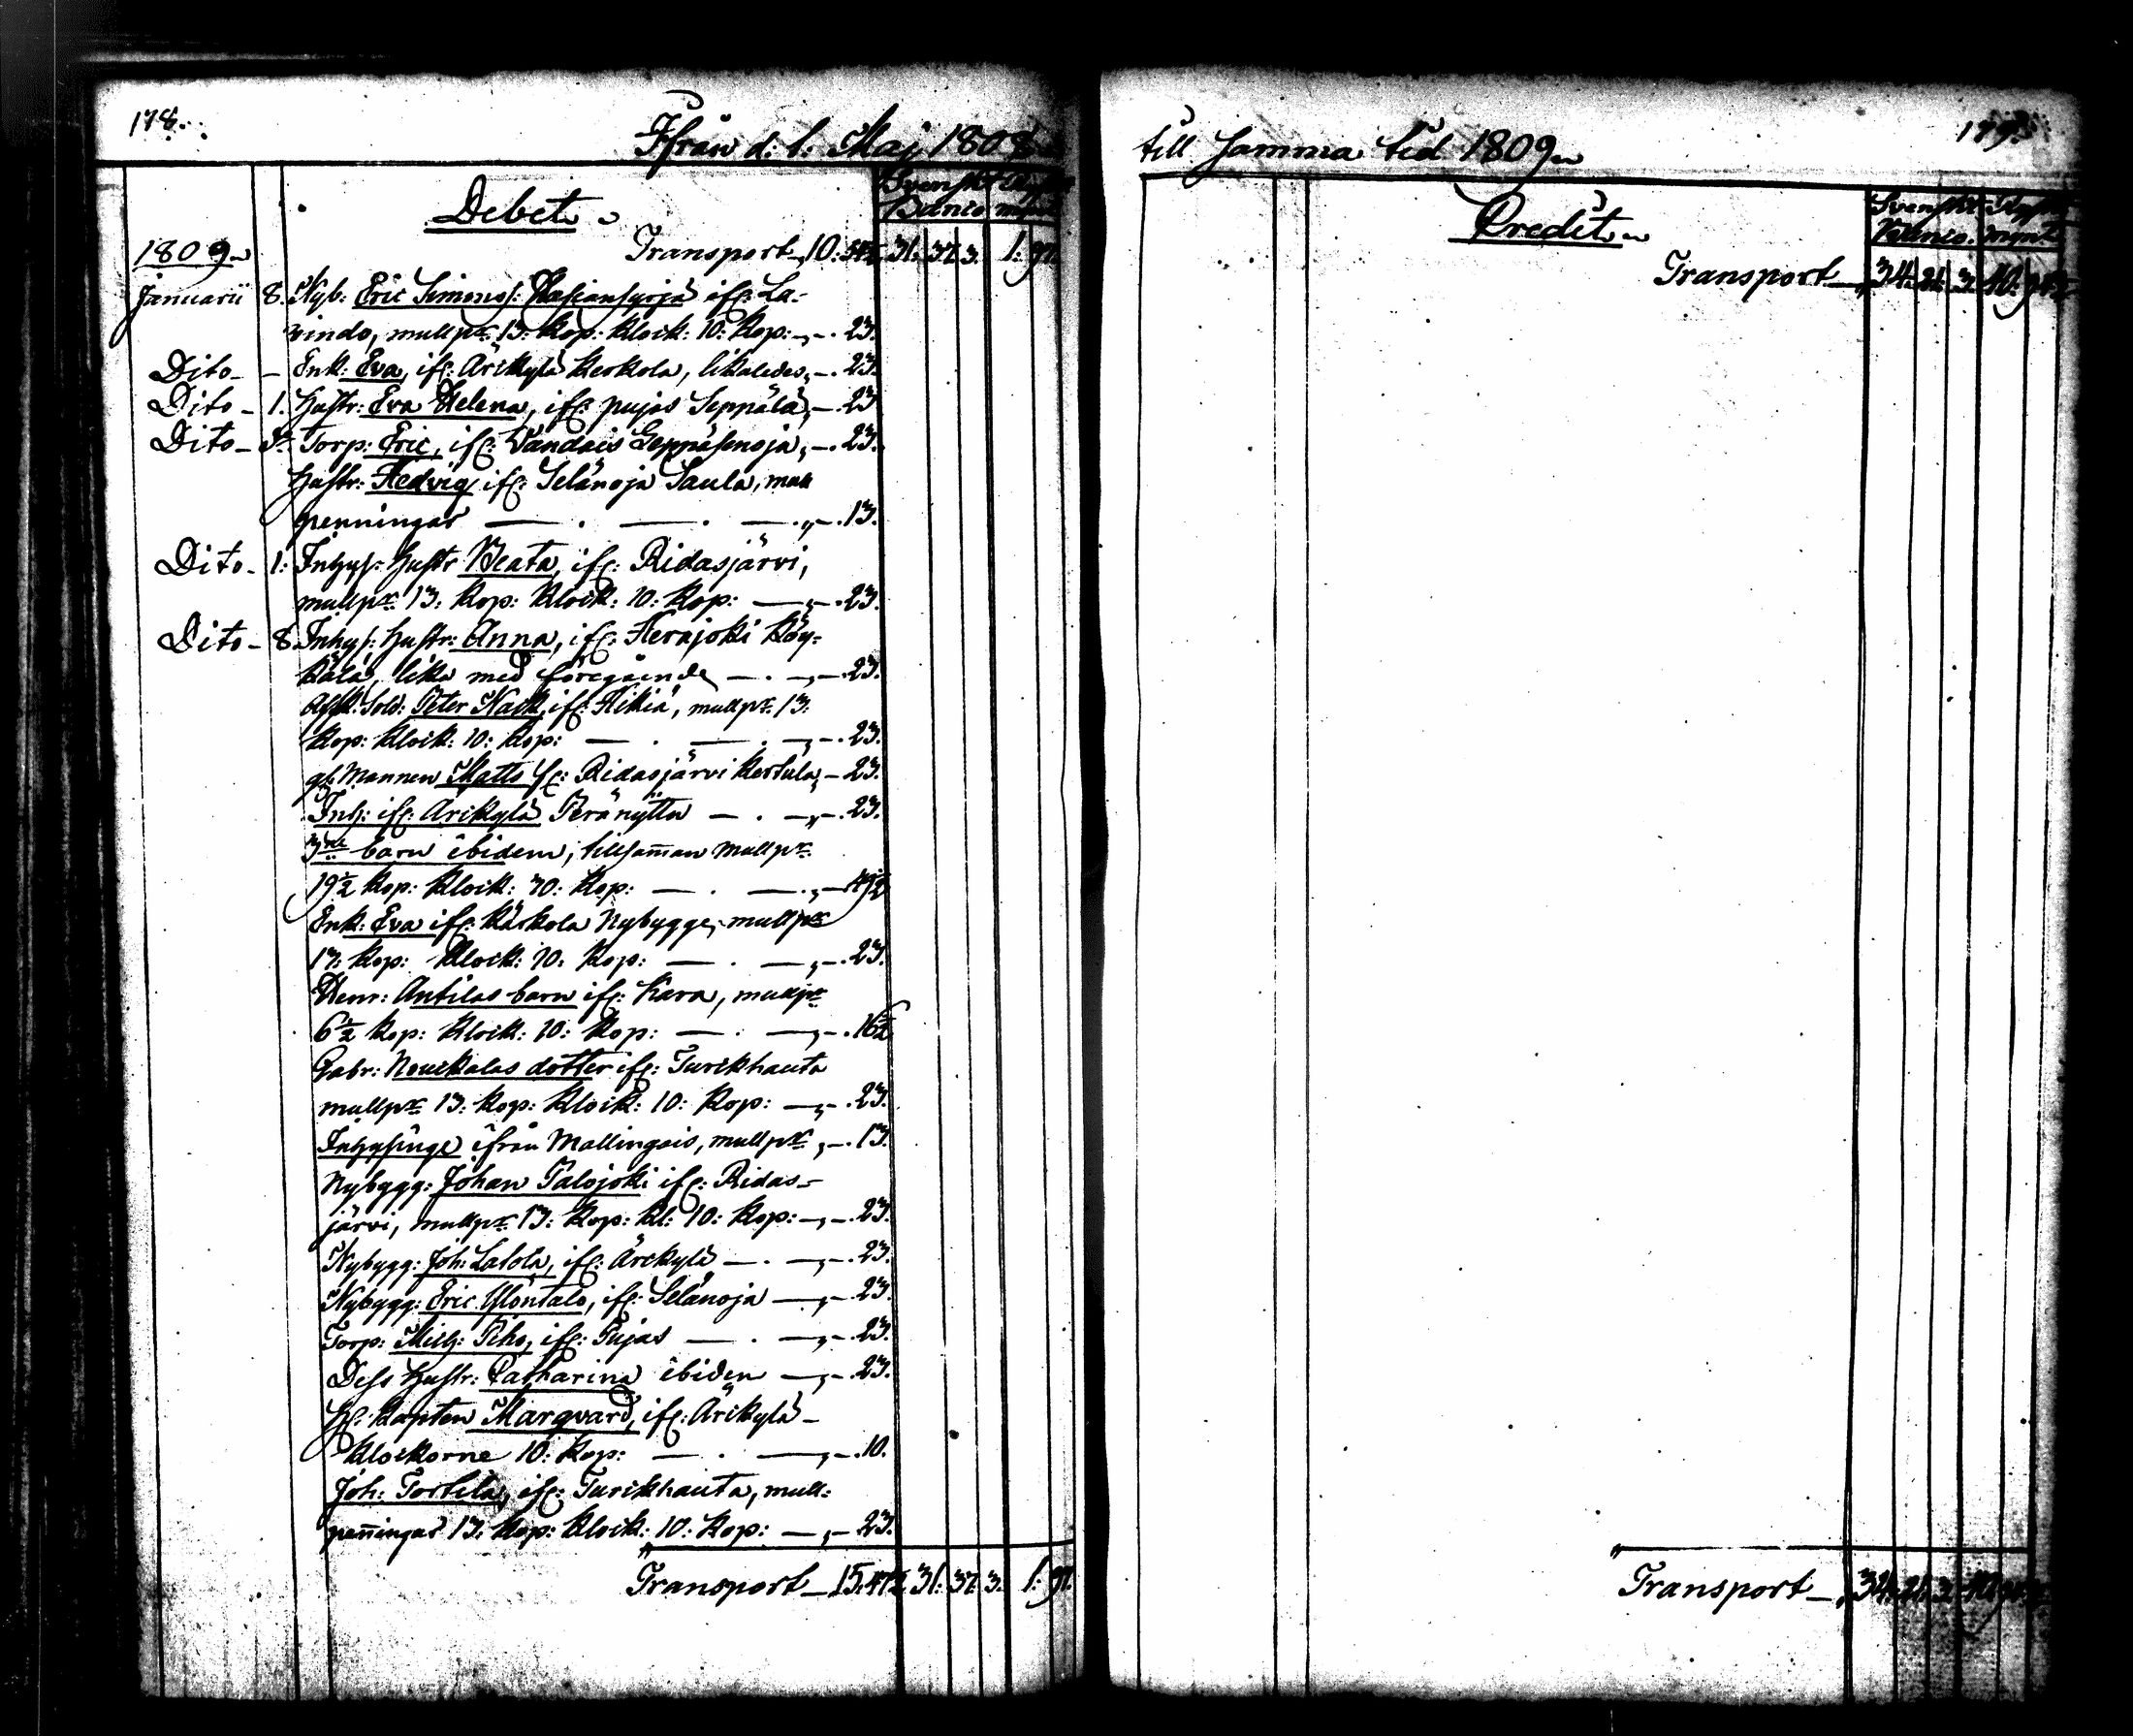 178.
Ifrån d: 1: Maj 1808
Debet
Svenskt
Banco
1809
Transport 10: 31. 37. 3. 1: 91.
Januarii 8. Nyb: Eric Simons: ifr: La-
vindo, mullpr: 13: Kop: Klock: 10: Kop: „ — . 23.
Dito — — Enk: Eva, ifr: Ärikylä Kerkola, likaledes, — . 23.
Dito — 1. Hustr: Eva Helena, ifr: pujas Seppälä, — . 23
Dito — Torp: Eric, ifr: Vandais — . 23.
Hustr: Hedvig ifr: Selänoja Saula, mull
penningar — . — . — . „ — . 13.
Dito — 1: Inhys: Hustr Beata, ifr: Ridasjärvi,
mullpr: 13: Kop: Klock: 10: Kop: — „ — . 23.
Dito — 8 Inhys: Hustr: Anna, ifr: Herajoki Köy-
kälä, lika med föregående — . — „ — . 23.
Afsk: Sold: Peter Nack, ifr: Hikiä, mullpr: 13:
Kop: Klock: 10: Kop: — . — . — „ — . 23.
gl: Mannen Matts ifr: Ridasjärvi Kertula, — 23.
Inh: ifr: Arikylä Peränyttu — . — „ — . 23.
3ne barn ibidem, tillsam̄an Mullpr:
19½ Kop: Klock: 30: Kop: — . — . „ — 49½
Enk: Eva ifr: Käskola Nybygge, mullpr
13: Kop: Klock: 10: Kop: — . — „ — . 23.
Henr: Antilas barn ifr: Kara, mullpr
6½ Kop: Klock: 10: Kop: — . — „ — . 16½
Gabr: Nouckalas dotter ifr: Turckhauta
mullpr 13: Kop: Klock: 10: Kop: — „ — . 23.
Inhysinge ifrån Mallingais, mullpr „ — . 13.
Nybygg: Johan Palojoki ifr: Ridas-
järvi, mullpr: 13: Kop: Kl: 10: Kop: — „ — . 23.
Nybygg: Joh: Lalola, ifr: Ärikylä — . — „ — . 23.
Nybygg: Eric Ylöntalo, ifr: Selänoja — „ — . 23.
Torp: Mich: Piho, ifr: Pujas — . — „ — . 23.
Dess Hustr: Catharina ibiden — „ — . 23.
Hr: Kapten Marqvard, ifr: Ärikylä —
Klockorne 10: Kop: — . — „ — . 10.
Joh: Tortila, ifr: Turckhauta, mull-
pen̄ingar 13: Kop: Klock: 10: Kop: — „ — 23.
Transport — 15. 47½. 31: 37. 3. 1: 91.
till samma tid 1809
179.
Credit
Svenskt
Banco. mynt.
Transport — „ 34. 21. 3. 40:
Transport — „ 34. 21. 3.